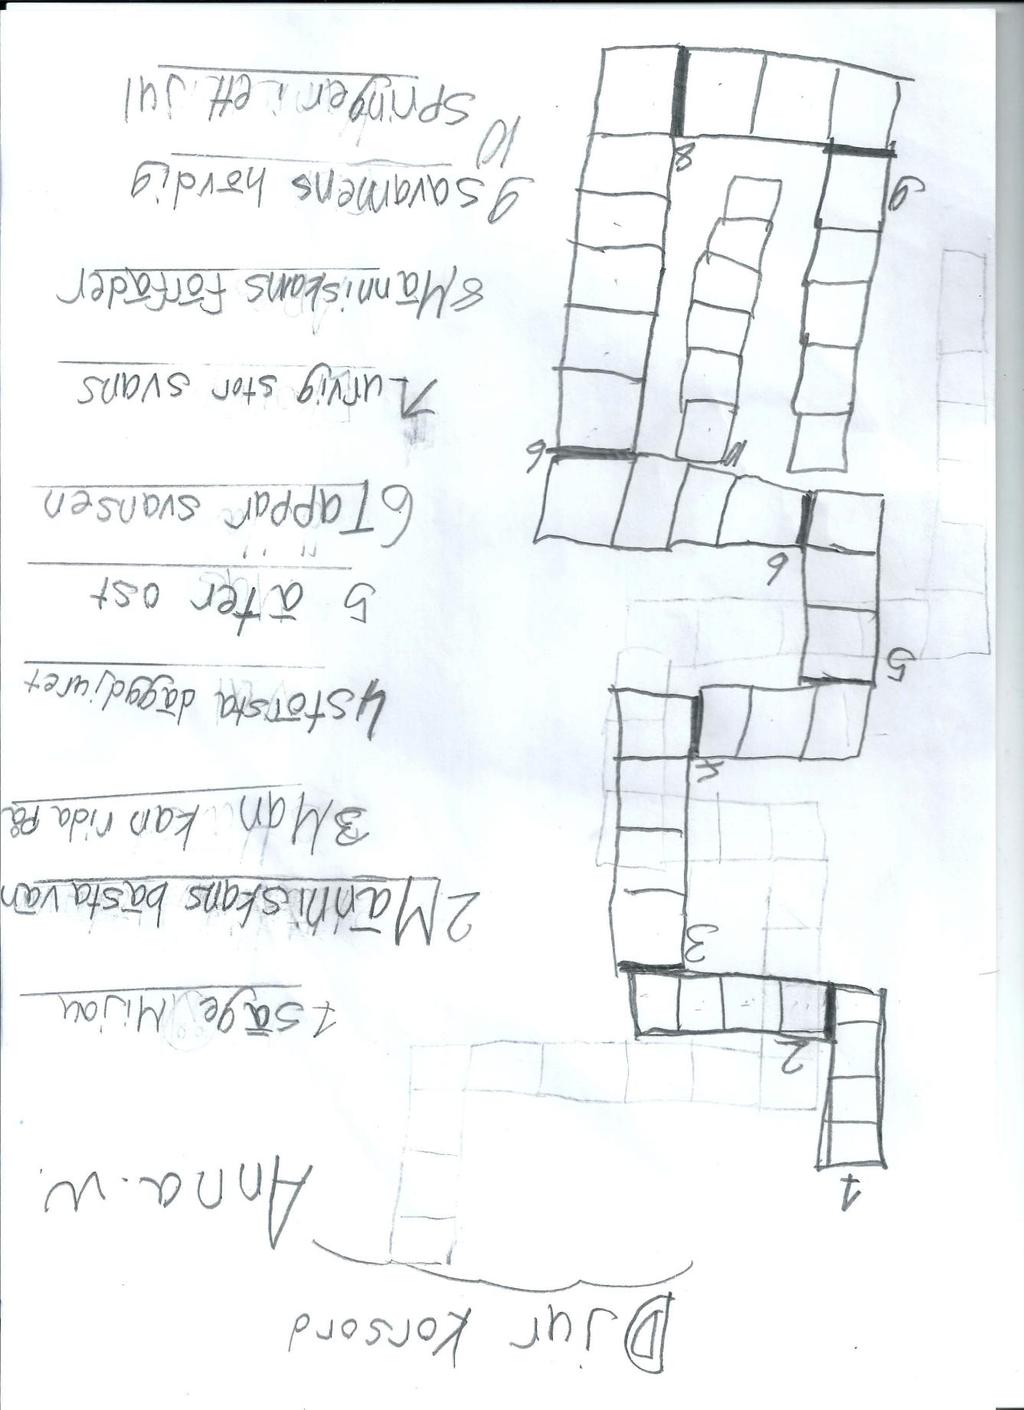 Djur Korsord
Anna.W.
1 säger Mijau
2 Människans bästa vän
3 Man kan rida på
4 största däggdjuret
5 äter ost
6 Tappar svansen
7 urvig stor svans
8 Människans förfäder
9 savamens hövdig
10 springer i ett jul
1
2
3
4
5
6
6
10
8
9